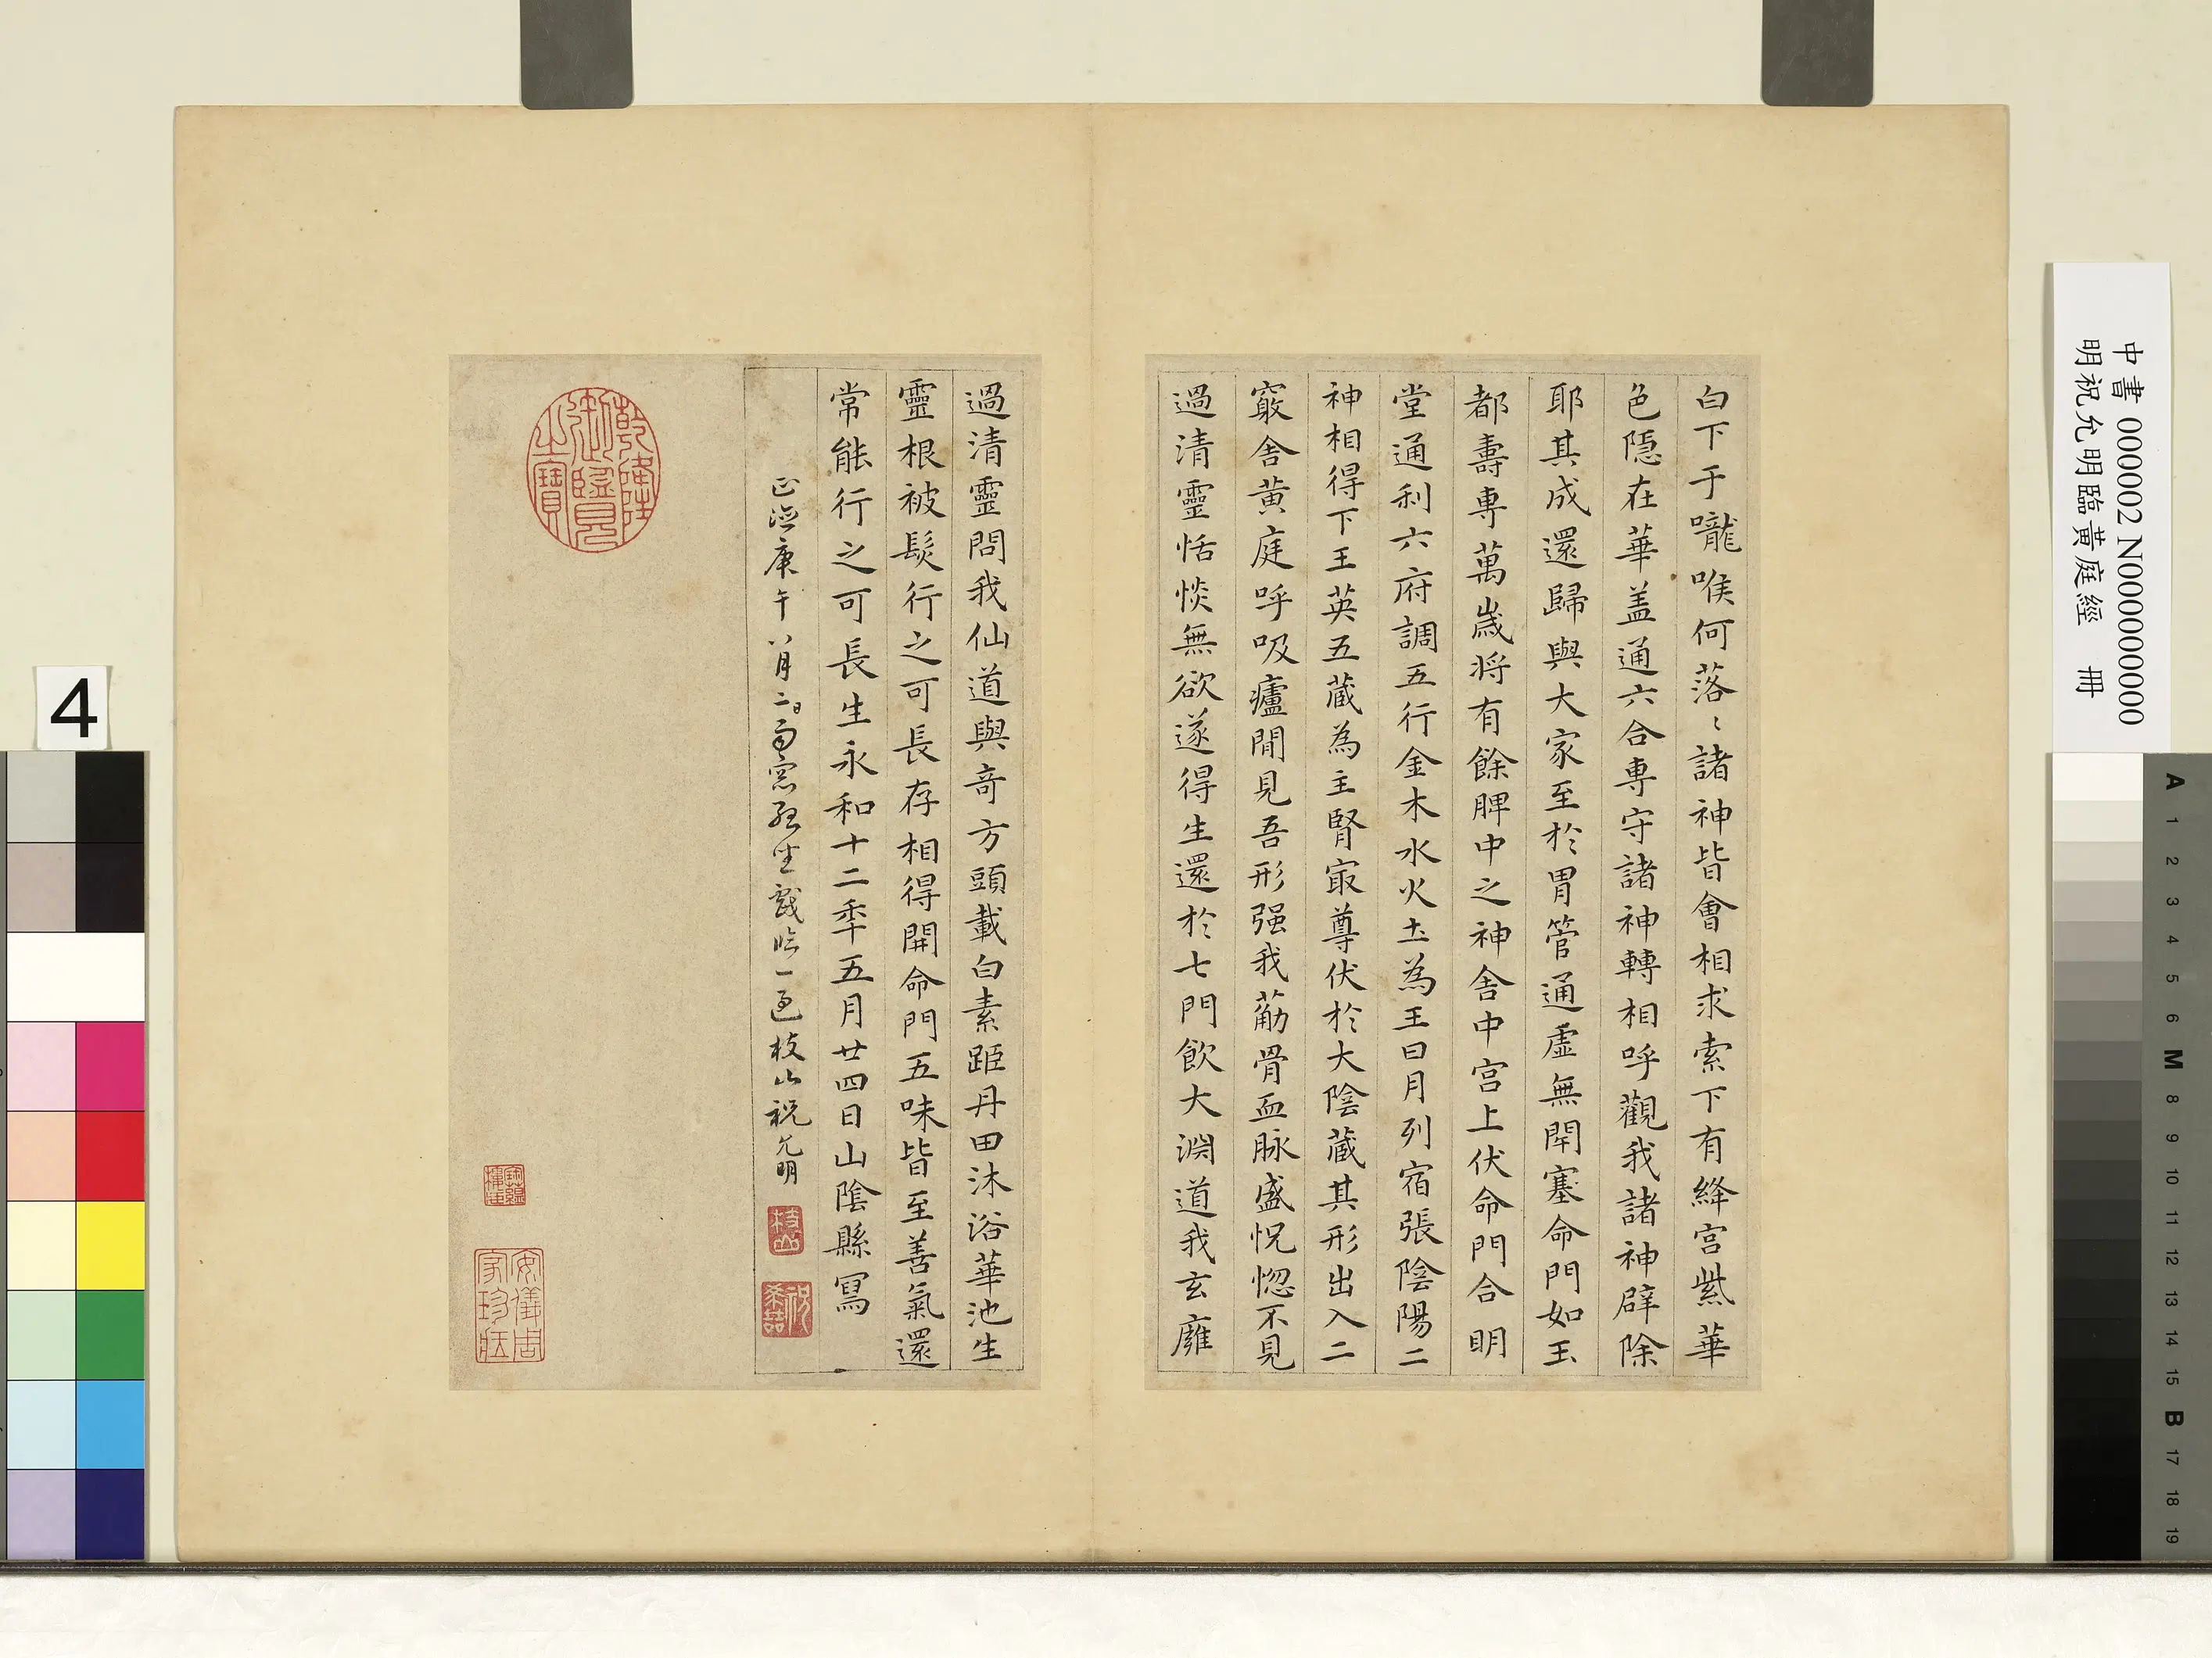 白下于嚨喉何落〻諸神皆會相求索下有絳宮紫華
色隱在華盖通六合專守諸神轉相呼觀我諸神辟除
耶其成還歸與大家至於胃管通虛無閇塞命門如玉
都壽專萬歲将有餘脾中之神舍中宮上伏命門合明
堂通利六府調五行金木水火土為王日月列宿張陰陽二
神相得下王英五蔵為主腎㝡尊伏於大陰蔵其形出入二
竅舍黄庭呼吸廬間見吾形强我萷骨血脉盛怳惚不見
過清靈恬惔無欲遂得生還於七門飲大淵道我玄廱
過清靈問我仙道與奇方頭載白素距丹田沐浴華池生
靈根被髮行之可長存相得開命門五味皆至善氣還
常能行之可長生永和十二秊五月廿四日山陰縣寫
正德庚午八月二日雨窓孤坐戲臨一過枝山祝允明
枝山
祝希喆
乾隆御覽之寶
安儀周家珍藏
中書 000002 N000000000
明祝允明臨黃庭經 冊
4
A 1 2 3 4 5 6 M 8 9 10 11 12 13 14 15 B 17 18 19